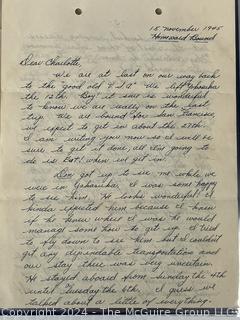 15 November 1945
Homeward Bound
Dear Charlotte,
We are at last on our way back
to the good old U.S.A. We left Yokosuka
the 13th. Boy it sure is wonderful
to know we are really on the last
trip. We are bound for San Francisco,
we expect to get in about the 27th.
I am writing you now so I will be
sure to get it done, all I'm going to
do is Eat! when we get in.
Don got up to see me while we
were in Yokosuka, I was some happy
to see him. He looks wonderful. I
kinda expected him because I knew
if he knew where I was he would
manage some how to get up. I tried
to fly down to see him but I couldn't
get any dependable transportation and
our stay there was very uncertain.
He stayed aboard from Sunday the 4th
until Tuesday the 6th. I guess we
talked about a little of everything.
Copyright 2024 - The McGuire Group LLC